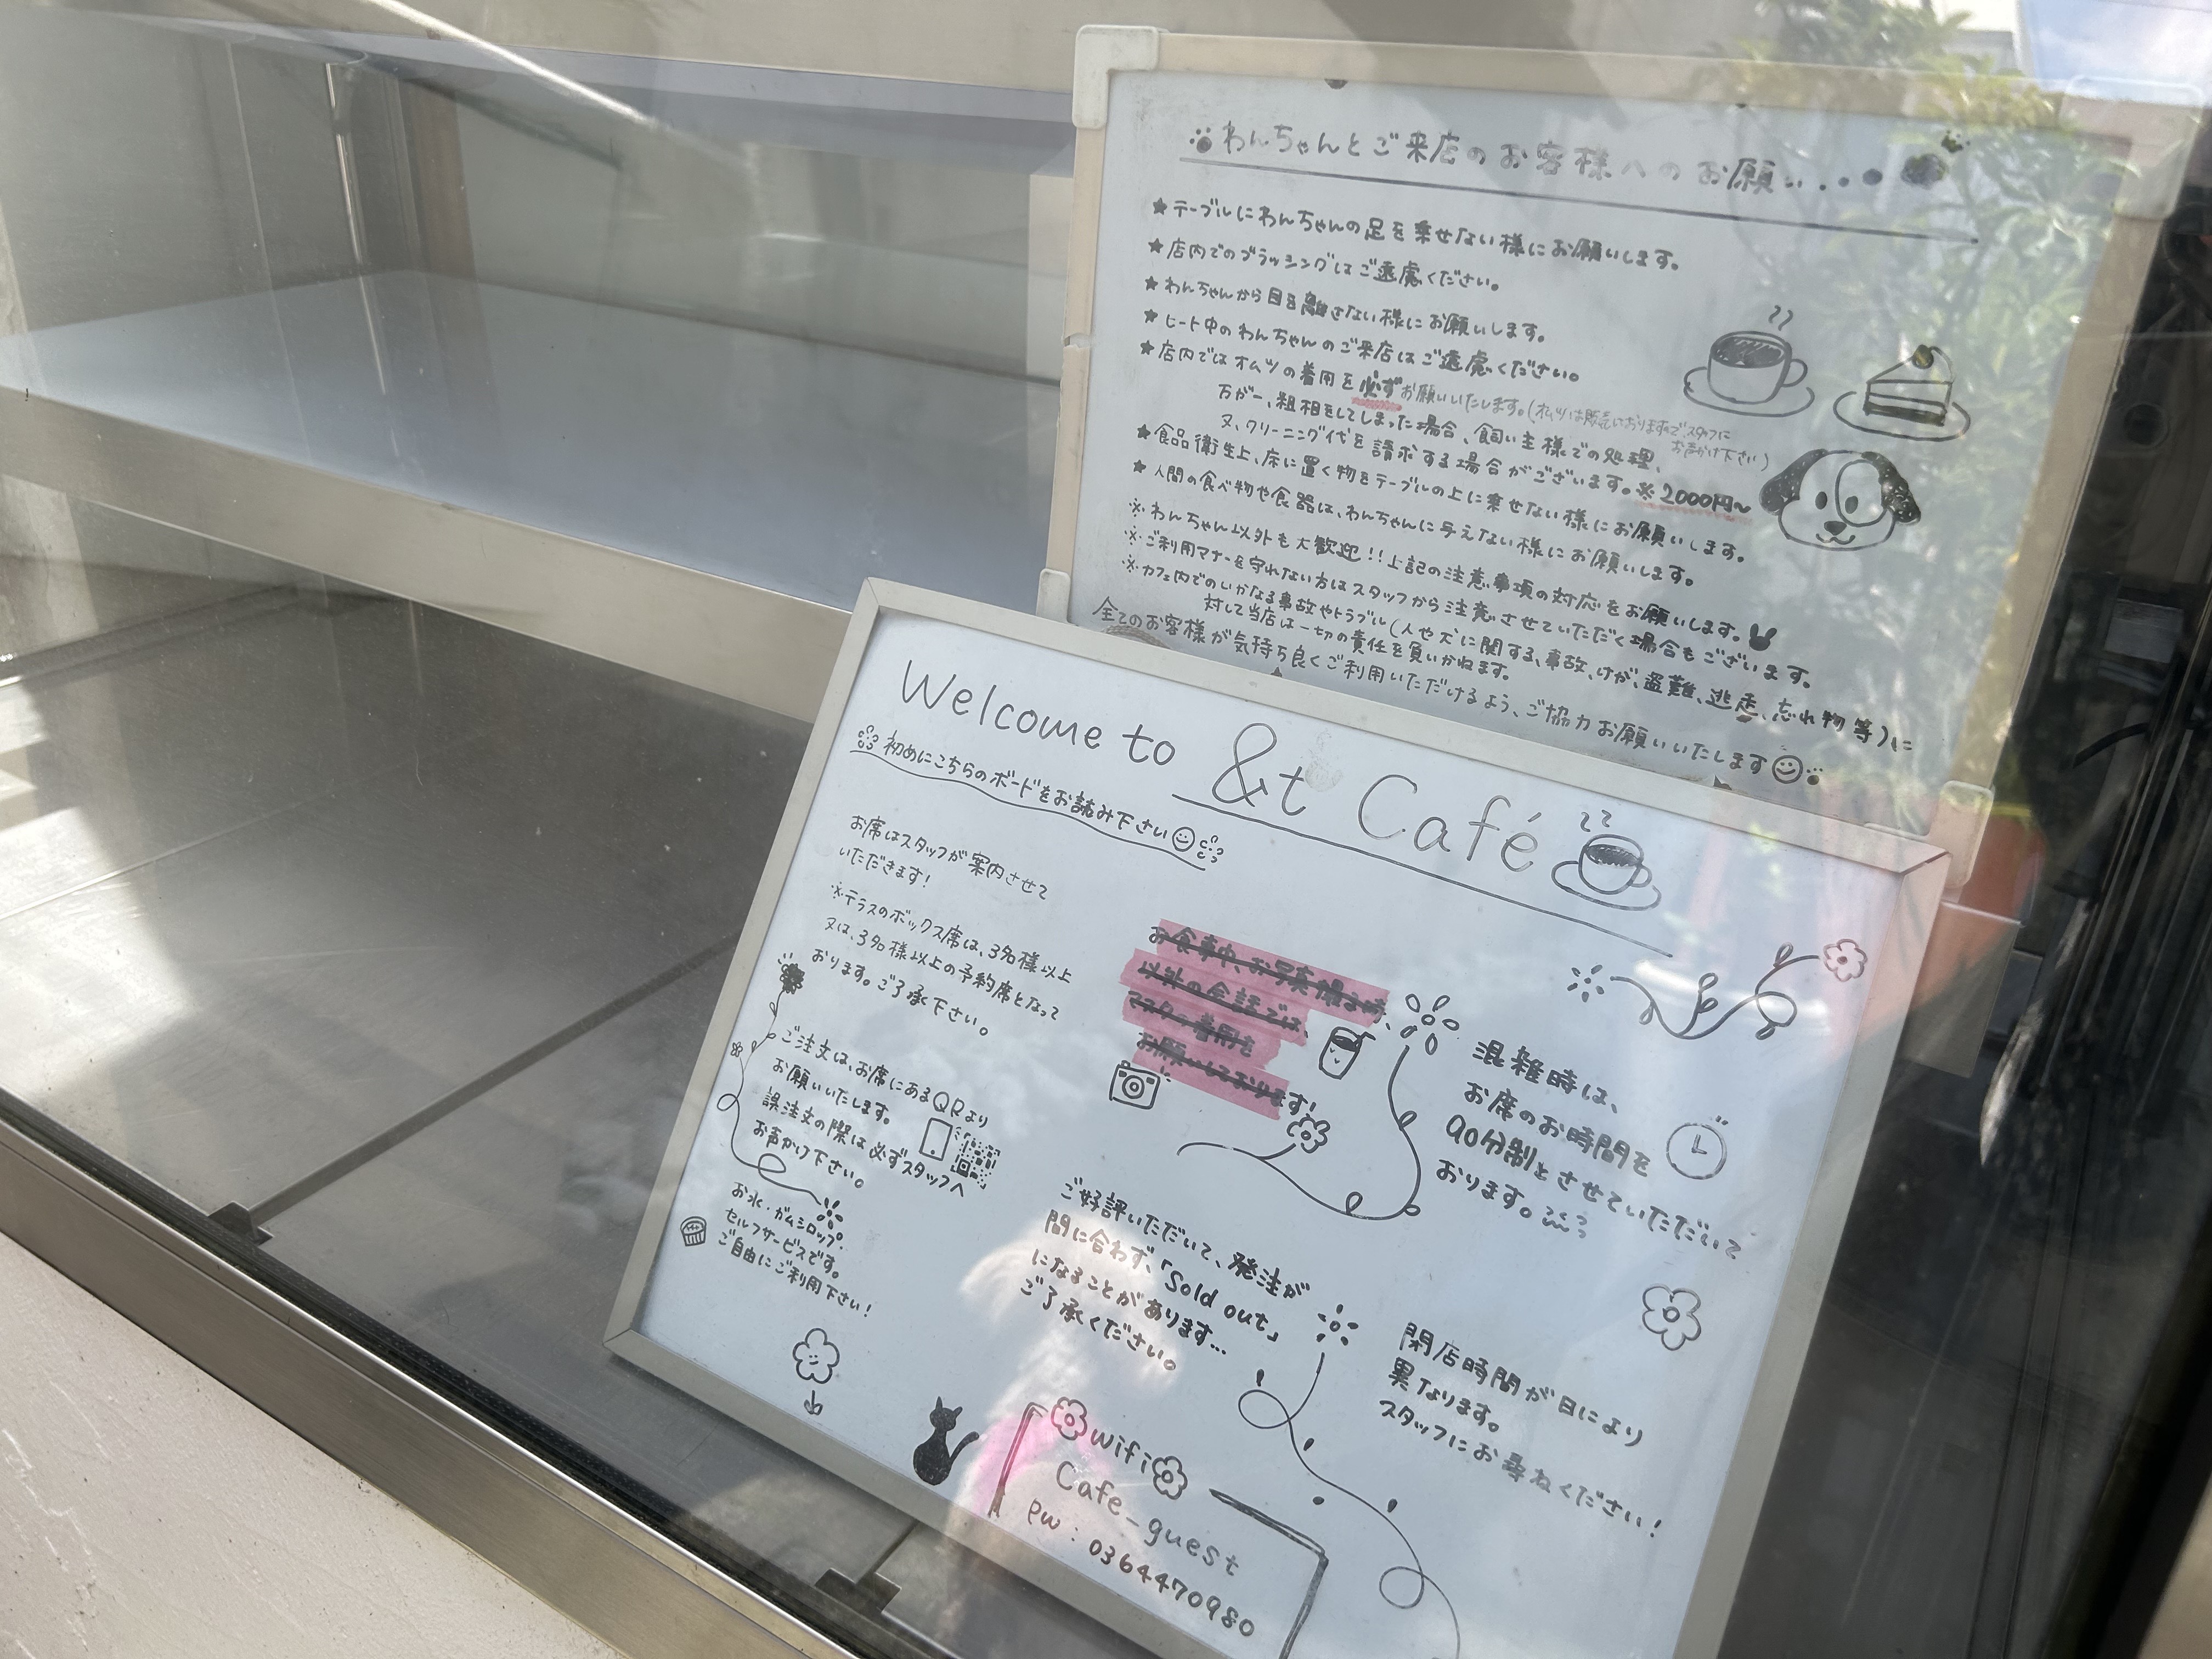 わんちゃんとご来店のお客様へのお願い...
★テーブルにわんちゃんの足を乗せない様にお願いします。
★店内でのブラッシングはご遠慮ください。
★わんちゃんから目を離さない様にお願いします。
★ヒート中のわんちゃんのご来店はご遠慮ください。
★店内ではオムツの着用を必ずお願いいたします。(オムツは販売しておりますのでスタッフに
お声かけ下さい)
万が一、粗相をしてしまった場合、飼い主様での処理、
又、クリーニング代を請求する場合がございます。※2000円〜
★食品衛生上、床に置く物をテーブルの上に乗せない様にお願いします。
★人間の食べ物や食器は、わんちゃんに与えない様にお願いします。
※わんちゃん以外も大歓迎!!上記の注意事項の対応をお願いします。
※ご利用マナーを守れない方はスタッフから注意させていただく場合もございます。
※カフェ内でのいかなる事故やトラブル(人や犬に関する、事故、けが、盗難、逃走、忘れ物等)に
対して当店は一切の責任を負いかねます。
全てのお客様が気持ち良くご利用いただけるよう、ご協力お願いいたします
Welcome to &t Café
初めにこちらのボードをお読み下さい
お席はスタッフが案内させて
いただきます!
※テラスのボックス席は、3名様以上
又は、3名様以上の予約席となって
おります。ご了承下さい。
ご注文は、お席にあるQRより
お願いいたします。
誤注文の際は必ずスタッフへ
お声かけ下さい。
お水・ガムシロップ・
セルフサービスです。
ご自由にご利用下さい!
お食事中、お写真撮る時、
以外の会話では、
マスクの着用を
お願いしております!
混雑時は、
お席のお時間を
90分制とさせていただいて
おります。
ご好評いただいて、発注が
間に合わず、「Sold out」
になることがあります…
ご了承ください。
閉店時間が日により
異なります。
スタッフにお尋ねください!
wifi
Cafe_guest
pw:0364470980